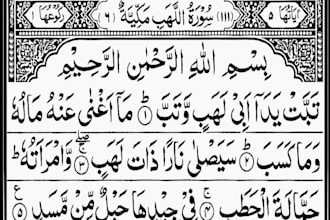 اٰیَاتُهَا ٥ (١١١) سُوْرَةُ اللَّهَبِ مَكِّیَّةٌ (٦) رُكُوْعُهَا ١
بِسْمِ اللّٰهِ الرَّحْمٰنِ الرَّحِیْمِ
تَبَّتْ یَدَاۤ اَبِیْ لَهَبٍ وَّتَبَّ ١ مَاۤ اَغْنٰی عَنْهُ مَالُهٗ
وَمَا كَسَبَ ٢ سَیَصْلٰی نَارًا ذَاتَ لَهَبٍ ٣ وَّامْرَاَتُهٗ ط
حَمَّالَةَ الْحَطَبِ ٤ فِیْ جِیْدِهَا حَبْلٌ مِّنْ مَّسَدٍ ٥